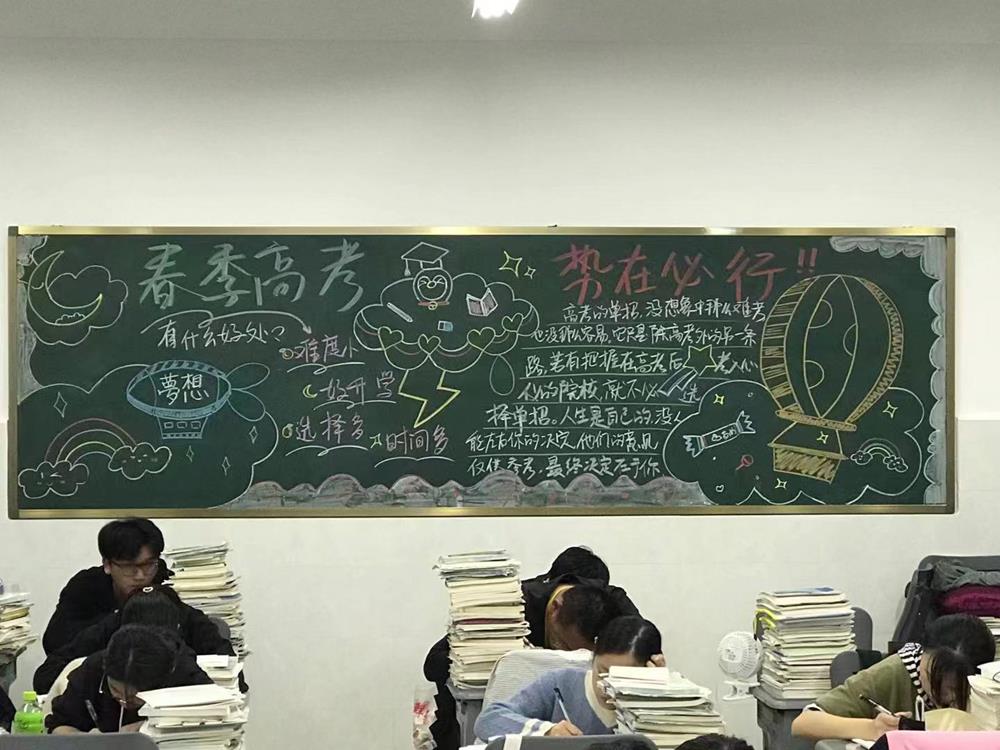 春季高考
有什么好处？
①难度小
好升学
选择多
时间多
夢想
势在必行!!
高考的单招，没想象中那么难考
也没那么容易，它只是除高考外的另一条
路，若有把握在高考后考入心
仪的院校，就不必选
择单招。人生是自己的，没人
能左右你的决定，他们的意见
仅供参考，最终决定在于你